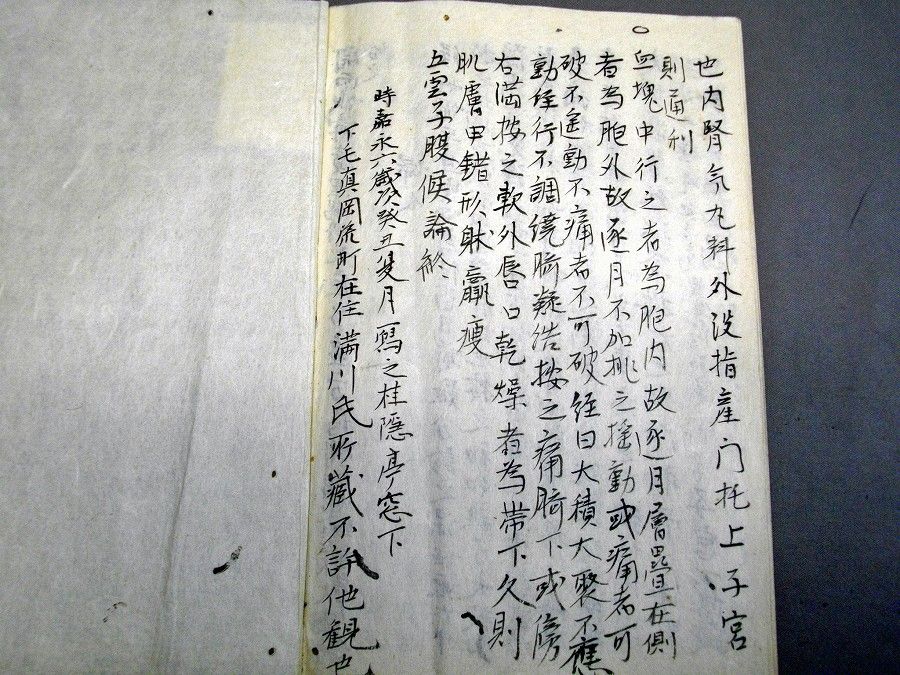 也内腎気丸料外洗指産門托上子宮
則通利
血塊中行之者為胞内故逐月層畳在側
者為胞外故逐月不加桃之揺動或痛者可
破不逹動不痛者不可破経曰大積大聚不應
動経行不調繞臍凝結按之痛臍下或傍
右満按之軟外唇口乾燥者為帯下久則
肌膚甲錯形躰羸痩
五雲子腹候論終
時嘉永六歳次癸丑 月寫之桂隠亭窓下
下毛真岡荒町在住満川氏所藏不許他観也